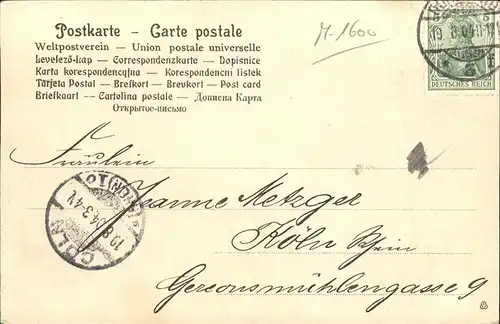 Postkarte – Carte postale
Weltpostverein — Union postale universelle
Levelező-Lap — Correspondenzkarte — Dopisnice
Karta korespondencyjna — Korespondencni listek
Tarjeta Postal — Brefkort — Brevkort — Post card
Briefkaart — Cartolina postale — Дописна Карта
Открытое-письмо
M-1600
5 5
DEUTSCHES REICH
Fräulein
Jeanne Metzger
Köln Rhein
Gereonsmühlengasse 9
CÖLN
19.8.04.3-4N